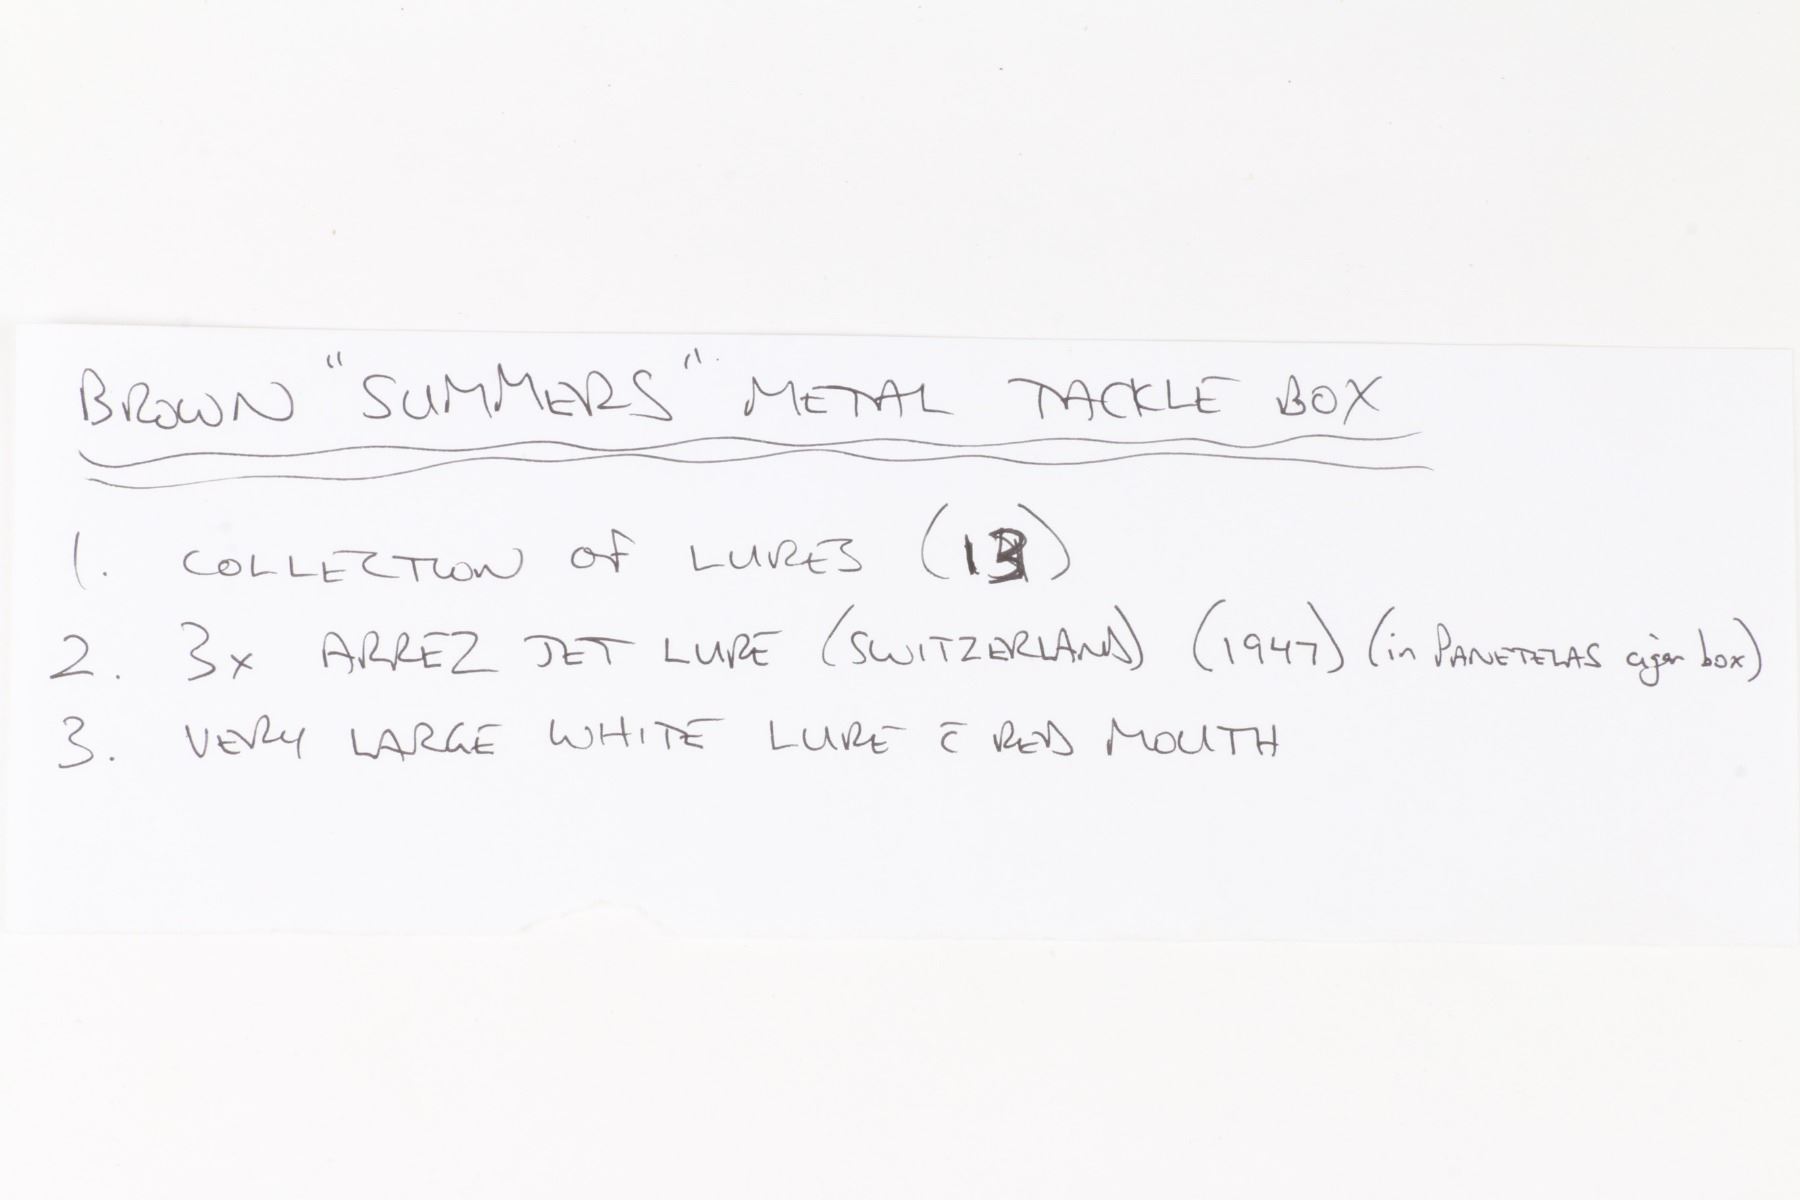 BROWN "SUMMERS" METAL TACKLE BOX
1. COLLECTION of LURES (13)
2. 3x ARREZ JET LURE (SWITZERLAND) (1947) (in PANETELAS cigar box)
3. VERY LARGE WHITE LURE c̄ RED MOUTH